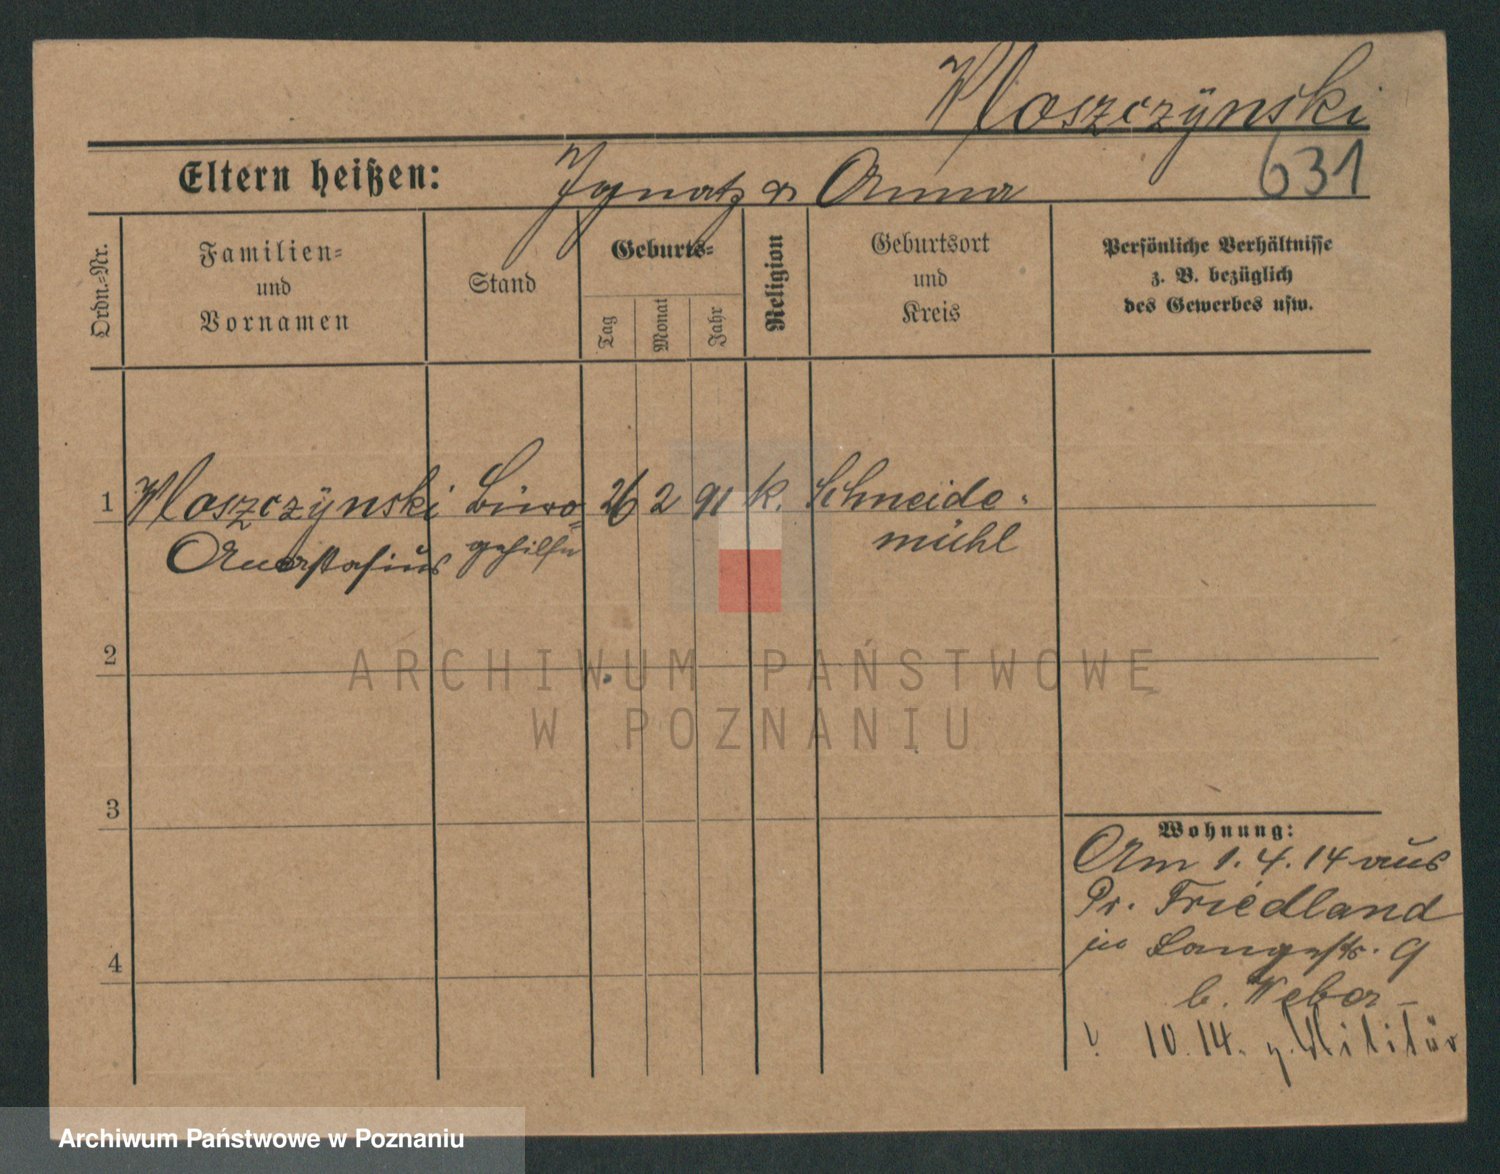 Kloszczÿnski
Eltern heißen: Ignatz u Anna 631
Ordn.-Nr.
Familien-
und
Vornamen
Stand
Geburts-
Tag
Monat
Jahr
Religion
Geburtsort
und
Kreis
Persönliche Verhältnisse
z. B. bezüglich
des Gewerbes usw.
1 Kloszczÿnski Büro- 26 2 91 k. Schneide-
Anastasius gehilfe mühl
2
3
4
Wohnung:
Am 1. 4. 14 aus
Pr. Friedland
in Langestr. 9
b. Weber
10. 14. z. Militär
ARCHIWUM PAŃSTWOWE
W POZNANIU
Archiwum Państwowe w Poznaniu